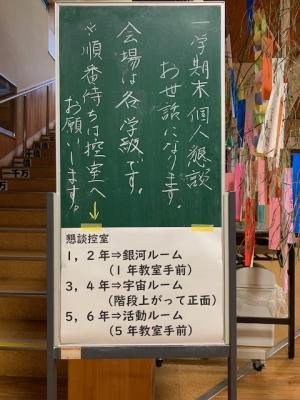 一学期末 個人懇談
お世話になります。
会場は各学級です。
※順番待ちは控室へ
お願いします。
懇談控室
1，2年⇒銀河ルーム
（1年教室手前）
3，4年⇒宇宙ルーム
（階段上がって正面）
5，6年⇒活動ルーム
（5年教室手前）
一千万